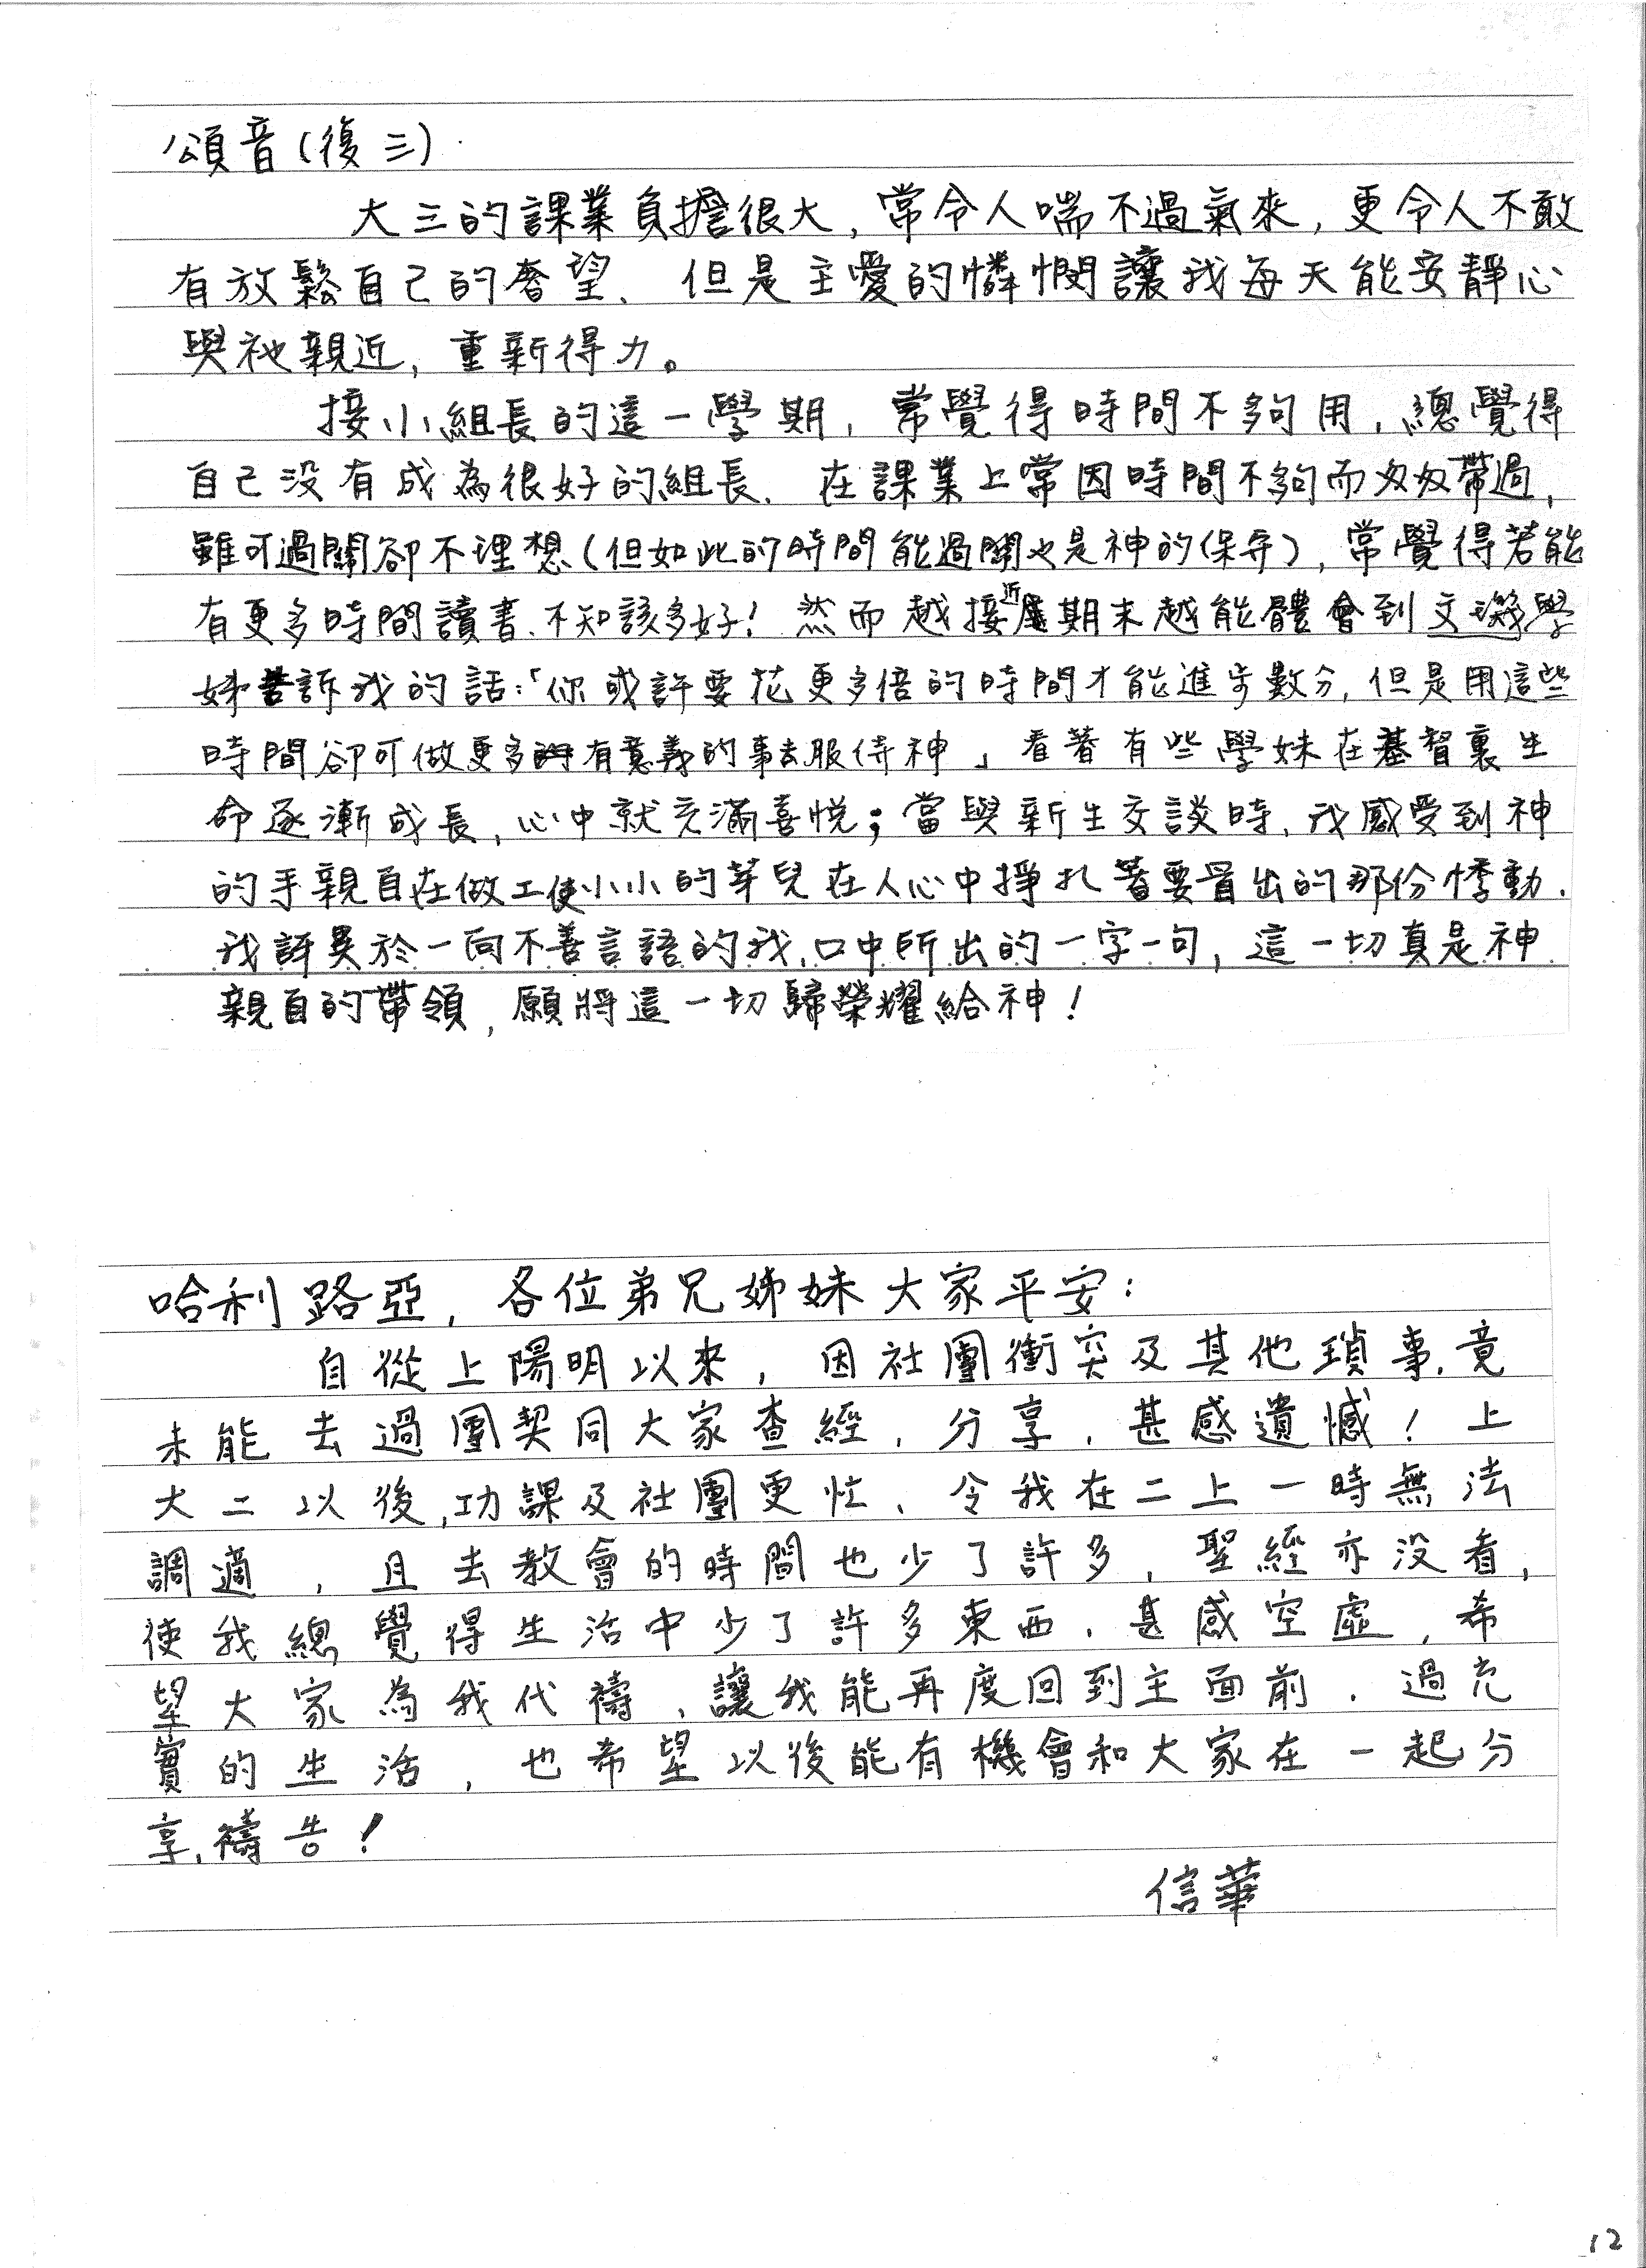 頌音(復三)
大三的課業負擔很大,常令人喘不過氣來,更令人不敢
有放鬆自己的奢望、但是主愛的憐憫讓我每天能安靜心
與祂親近,重新得力。
接小組長的這一學期,常覺得時間不夠用,總覺得
自己没有成為很好的組長、在課業上常因時間不夠而匆匆帶過,
雖可過關卻不理想(但如此的時間能過關也是神的保守),常覺得若能
有更多時間讀書、不知該多好!然而越接近期末越能體會到文璣學
姊告訴我的話:「你或許要花更多倍的時間才能進步數分,但是用這些
時間卻可做更多有意義的事去服侍神」看著有些學妹在基督裏生
命逐漸成長,心中就充滿喜悅;當與新生交談時、我感受到神
的手親自在做工使小小的芽兒在人心中掙扎著要冒出的那份悸動.
我訝異於一向不善言語的我,口中所出的一字一句,這一切真是神
親自的帶領,願將這一切歸榮耀給神!
哈利路亞,各位弟兄姊妹大家平安:
自從上陽明以來,因社團衝突及其他瑣事,竟
未能去過團契同大家查經,分享,甚感遺憾!上
大二以後,功課及社團更忙、令我在二上一時無法
調適,且去教會的時間也少了許多,聖經亦没看,
使我總覺得生活中少了許多東西,甚感空虛,希
望大家為我代禱,讓我能再度回到主面前,過充
實的生活,也希望以後能有機會和大家在一起分
享,禱告!
信華
12